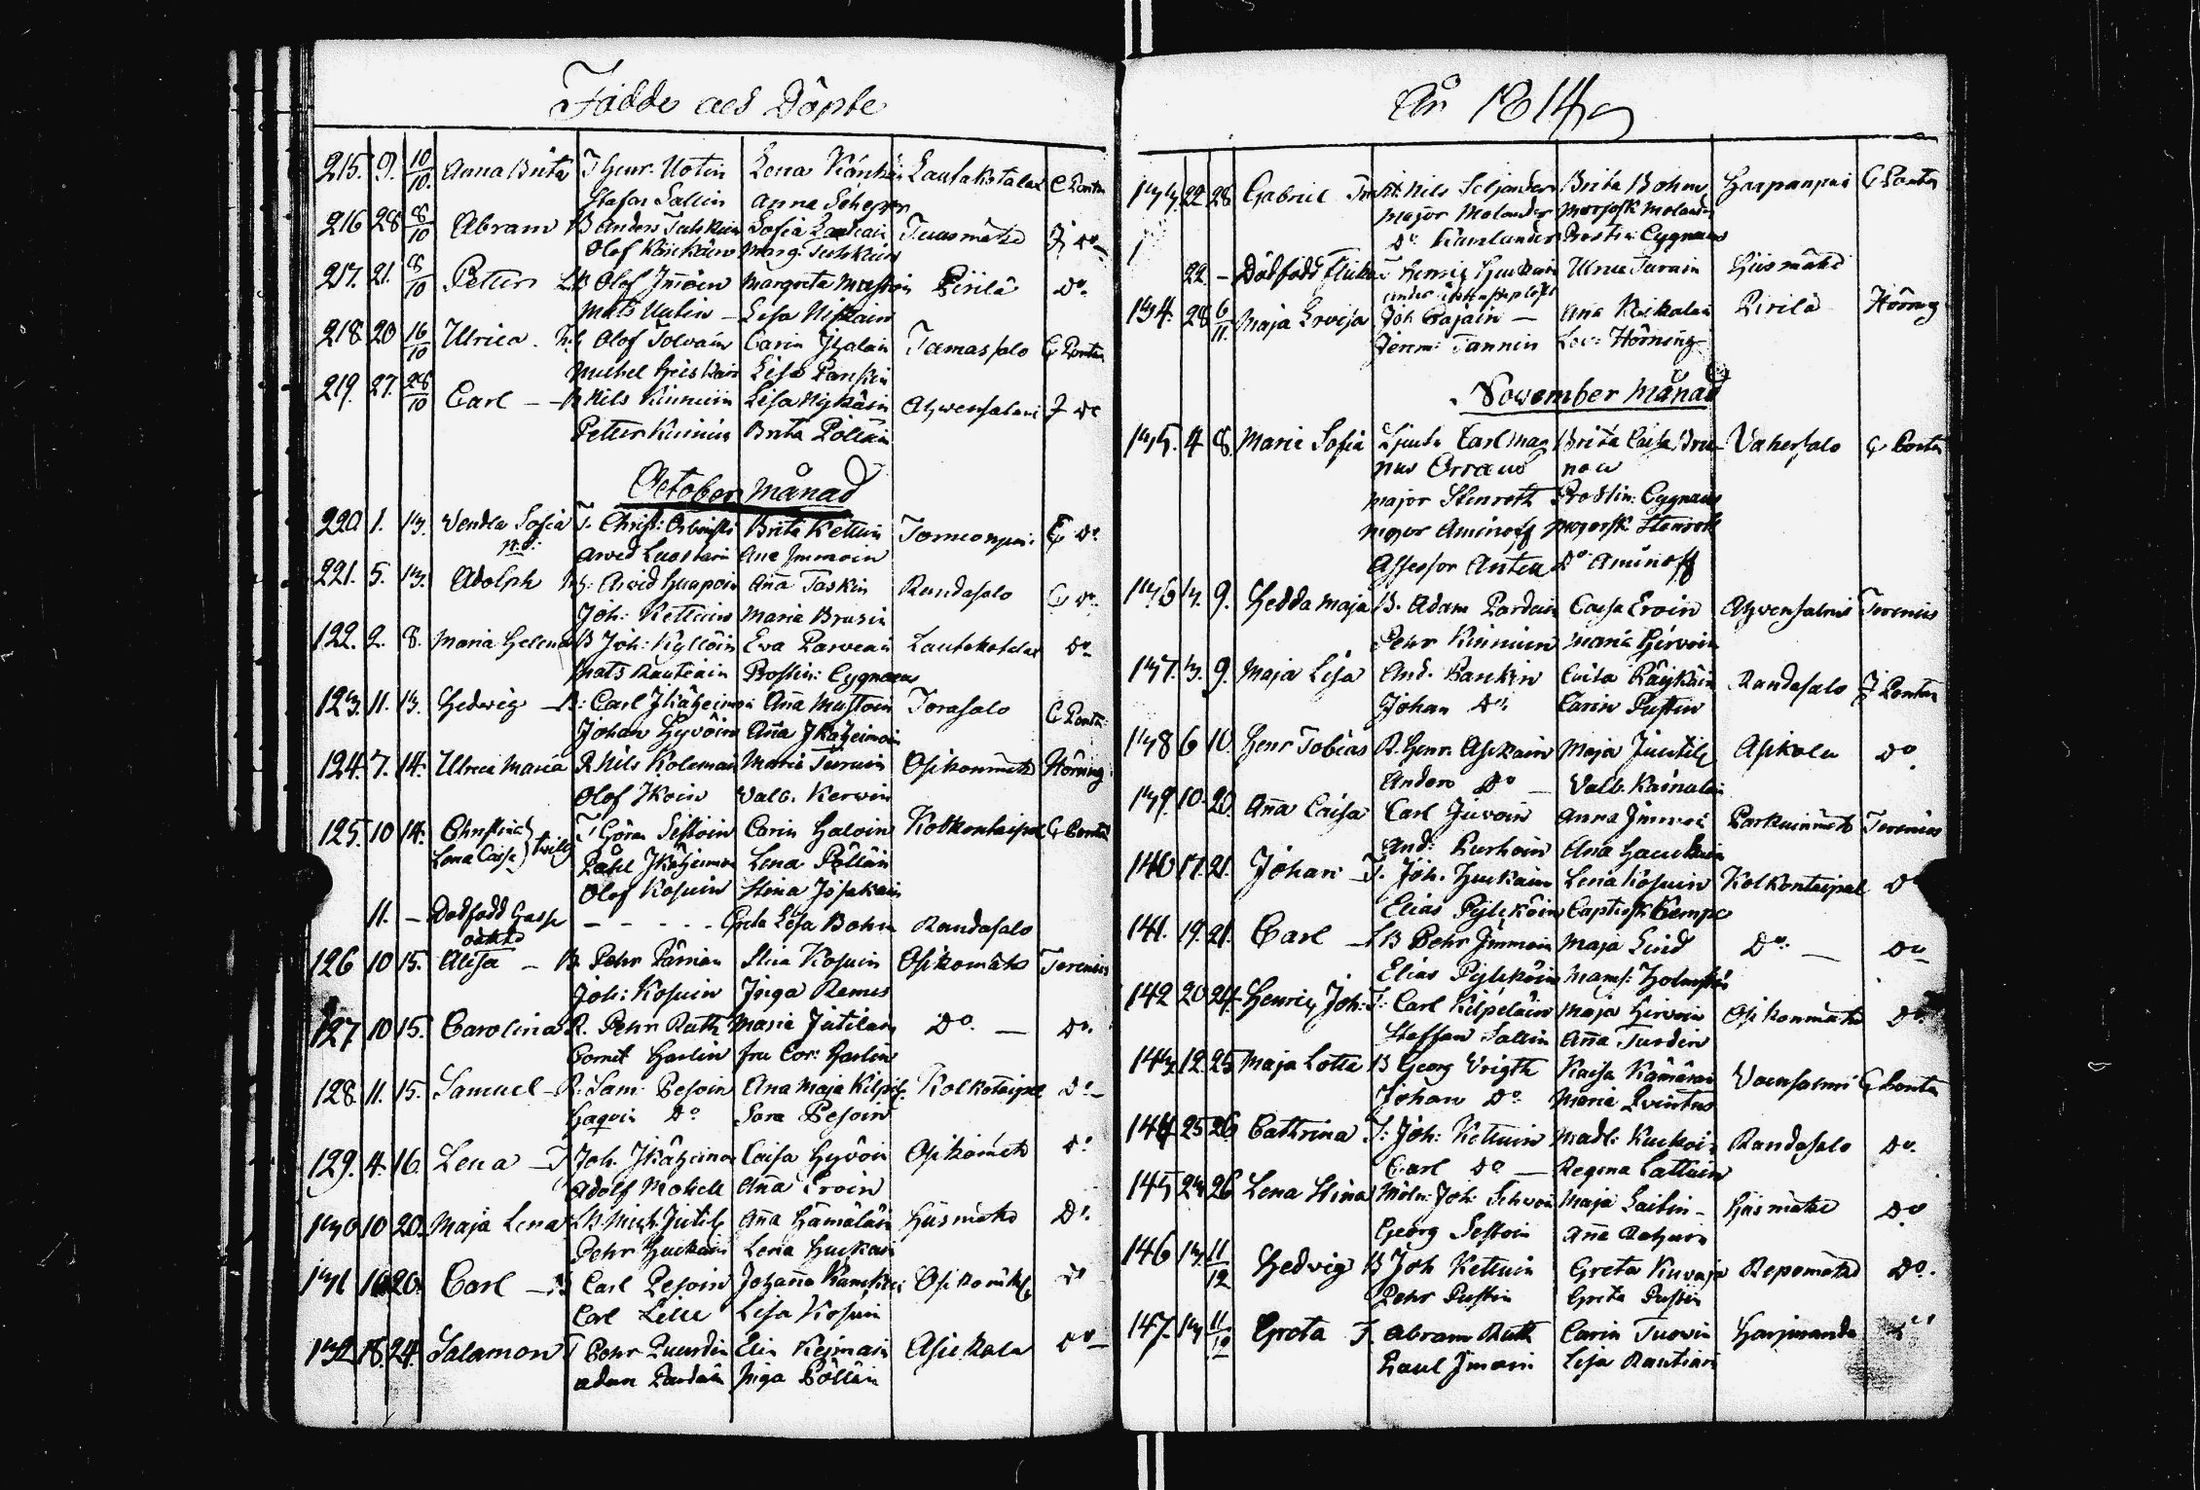 Födde och Döpte
215. 9. 10/10. Anna Brita T Henr. Uotin Lena Känkäin Lautakotalax C Pontan
Stafan Sallin Anna Scheper
216 28 8/10 Abram B Anders Tuhkain Sofia Tuusmäki J Do
Olof Käickäin Marg: Tuhkain
217. 21. 8/10 Petter LB Olof Immoin Margreta Mustoin Pirilä Do
Mats Uutin Lisa Niskain
218 20 16/10 Ulrica Olof Tolvain Carin Ikälain Tamassalo C Pontan
Michel Heiskain Lisa Parikin
219. 27. 28/10 Carl Nils Kinnuin Lisa Nykäin Ahvensalmi J Do
Petter Kinnuin Brita Pöllain
October Månad
220 1. 13. Vendla Sofia T. Christ: Brita Kettuin E Do
Arvid Luostarin Ana Immoin
221. 5. 13. Adolph Arvid Haapoin Aña Taskin Randasalo C Do
Joh: Kettuin Maria Brusin
122. 2. 8. Maria Helena B Joh: Kyllöin Eva Parviain Lautakotalax Do
Mats Rautiain Prostin: Cygnaeus
123. 11. 13. Hedwig B: Carl Ikäheimoin Aña Mustoin Torasalo C Pontan
Johan Hyvöin Aña Ikäheimoin
124. 7. 14. Ulrica Maria R Nils Kolemain Maria Turuin Osikonmäki Hörning
Olof Ikoin Valb. Kervin
125. 10 14. Christina T Göran Sistoin Carin Haloin Kolkontaipal C Pontan
Lena Caisa } twill Påhl Ikäheimoin Lena Pöllain
Olof Kosuin Stina Issakain
11. — Dödfödd Gosse — — — — Greta Lisa Bohm Randasalo
oäkta
126 10 15. Alisa B Pehr Pärnain Stina Kosuin Osikomäki Forenius
Joh: Kosuin Inga Remes
127 10 15. Carolina R. Pehr Ruth Maria Jutilain Do. — Do.
Cornet Harlin fru Cor: Harlin
128. 11. 15. Samuel R. Sam: Pesoin Ana Maja Kilpil: Kolkotaipal Do
Haqvin Do Sara Pesoin
129. 4. 16. Lena T Joh. Ikäheimoin Caisa Hyvöin Osikomäki Do
Adolf Mokell Aña Eroin
130 10 20. Maja Lena LB Mich: Jutil: Aña Hämäläin Hiismäki Do.
Pehr Huckain Lena Huckain
131 16 20. Carl B Carl Pesoin Johaña Kamskoi Osikomäki Do
Carl Lelle Lisa Kosuin
132 18. 24. Salamon T Pehr Puurdin Elin Keinain Asickala Do
Adam Pardain Inga Pöllain
År 1814
133. 22 28 Gabriel Nils Seljander Brita Bohm Haapanpai C Pontan
Major Molander Majorsk Molander
Do Ramlander Prostin: Cygnaeus
22. — Dödfödd flicka T Henric Huckain Ulrica Turuin Hiismäki
134. 28 6/11. Maja Lovisa Joh Ana Pirilä Hörning
Jerem: Tannin Lov: Hörning
November Månad
135. 4 8. Maria Sofia Ljuts Carl Mag- Brita Caisa Bru- Vahersalo C Pontan
nus Orraeus now
Major Stenroth Prostin: Cygnaeus
Major Aminoff Majorsk Stenroth
Assessor Antell Do Aminoff
136 3. 9. Hedda Maja B. Adam Pardain Caisa Eroin Ahvensalmi Forenius
Pehr Kinnuin Maria Hirvoin
137. 3. 9. Maja Lisa And. Pankin Caisa Räykäin Randasalo J Pontan
Johan Do. Carin Pustin
138 6 10. Henr Tobias R. Henr. Asikain Maja Jutil: Asikala Do
Anders Do — Valb. Kainulain
139. 10. 20. Aña Caisa Carl Juvoin Anna Parkuinmäki Forenius
And: Kurhoin Ana Hauckain
140 17. 21. Johan T. Joh. Huckain Lena Kosuin Kolkontaipal Do
Elias Pylckoin Captensk Kempe
141. 19. 21. Carl LB Pehr Immoin Maja Lind Do. — Do
Elias Pylckoin Mams: Holmsten
142 20 24. Henric Joh: T: Carl Kilpeläin Maja Hirvoin Osikonmäki Do.
Staffan Sallin Aña Turdin
143. 12 25 Maja Lotta B Georg Vrigth Kaisa Kämärain Vaensalmi C Pontan
Johan Do. Maria Qvintus
144 25 26 Cathrina T: Joh: Kettuin Madl: Kuckoin Randasalo Do.
Carl Do — Regina Lattuin
145 23 26 Lena Stina Möln. Joh: Schwan Maja Laitin Hiismäki Do
Georg Sestoin Aña Rahuin
146 13 11/12 Hedvig B Joh Kettuin Greta Kuvaja Repomäki Do.
Pehr Pustin Greta Pustin
147. 13 11/12 Greta T. Abram Ruth Carin Tuovin Harjuranda Do
Paul Imoin Lisa Rautiain